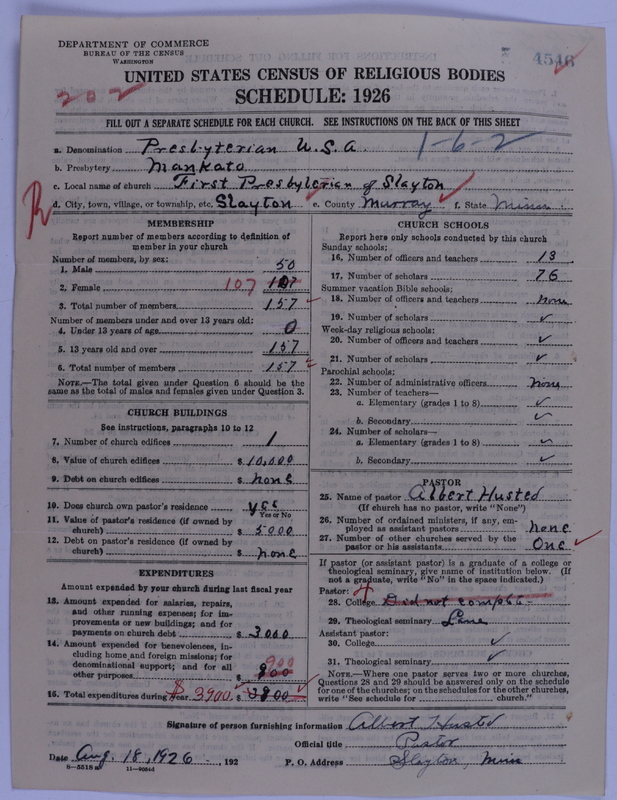 DEPARTMENT OF COMMERCE
BUREAU OF THE CENSUS
WASHINGTON
4546
202
UNITED STATES CENSUS OF RELIGIOUS BODIES
SCHEDULE: 1926
FILL OUT A SEPARATE SCHEDULE FOR EACH CHURCH. SEE INSTRUCTIONS ON THE BACK OF THIS SHEET
1-6-2
a. Denomination Presbyterian U.S.A.
b. Presbytery Mankato
c. Local name of church First Presbyterian of Slayton
d. City, town, village, or township, etc. Slayton e. County Murray f. State Minn.
R
MEMBERSHIP
Report number of members according to definition of
member in your church
Number of members, by sex:
1. Male 50
2. Female 107 107
3. Total number of members 157
Number of members under and over 13 years old:
4. Under 13 years of age 0
5. 13 years old and over 157
6. Total number of members 157
NOTE.—The total given under Question 6 should be the
same as the total of males and females given under Question 3.
CHURCH BUILDINGS
See instructions, paragraphs 10 to 12
7. Number of church edifices 1
8. Value of church edifices $ 10,000
9. Debt on church edifices $ none
10. Does church own pastor's residence? yes
Yes or No
11. Value of pastor's residence (if owned by
church) $ 5000
12. Debt on pastor's residence (if owned by
church) $ none
EXPENDITURES
Amount expended by your church during last fiscal year
13. Amount expended for salaries, repairs,
and other running expenses; for im-
provements or new buildings; and for
payments on church debt $ 3000
14. Amount expended for benevolences, in-
cluding home and foreign missions; for
denominational support; and for all
other purposes $ 900
15. Total expenditures during year $3900 $ 3800
CHURCH SCHOOLS
Report here only schools conducted by this church
Sunday schools:
16. Number of officers and teachers 13
17. Number of scholars 76
Summer vacation Bible schools:
18. Number of officers and teachers none
19. Number of scholars ✓
Week-day religious schools:
20. Number of officers and teachers ✓
21. Number of scholars ✓
Parochial schools:
22. Number of administrative officers none
23. Number of teachers—
a. Elementary (grades 1 to 8) ✓
b. Secondary ✓
24. Number of scholars—
a. Elementary (grades 1 to 8) ✓
b. Secondary ✓
PASTOR
25. Name of pastor Albert Husted
(If church has no pastor, write "None")
26. Number of ordained ministers, if any, em-
ployed as assistant pastors none
27. Number of other churches served by the
pastor or his assistants One
If pastor (or assistant pastor) is a graduate of a college or
theological seminary, give name of institution below. (If
not a graduate, write "No" in the space indicated.)
Pastor:
28. College Did not complete
29. Theological seminary Lane
Assistant pastor:
30. College ✓
31. Theological seminary ✓
NOTE.—Where one pastor serves two or more churches,
Questions 28 and 29 should be answered only on the schedule
for one of the churches; on the schedules for the other churches,
write "See schedule for church."
Signature of person furnishing information Albert Husted
Official title Pastor
Date Aug. 18, 1926, 192 P. O. Address Slayton, Minn
8—5518 a 11—9054d